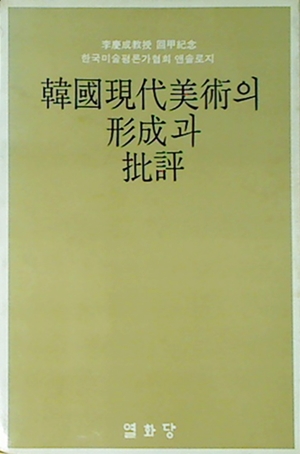 李慶成敎授 回甲紀念
한국미술평론가협회 앤솔로지
韓國現代美術의
形成과
批評
열화당